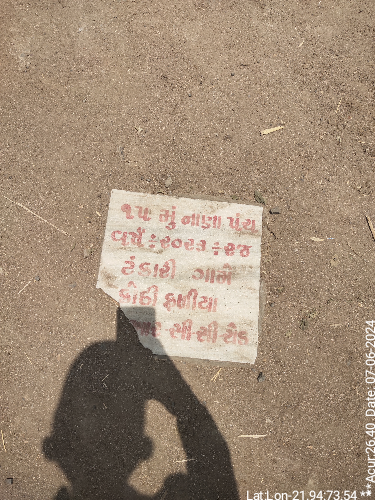 ૧૫ મું નાણા પંચ
વર્ષ ÷ ૨૦૨૩ ÷ ૨૪
ટંકારી ગામે
કોઠી ફળીયા
સી સી રોડ
Lat Lon-21 94:73.54 **
Acur:26.40, Date: 07-06-2024